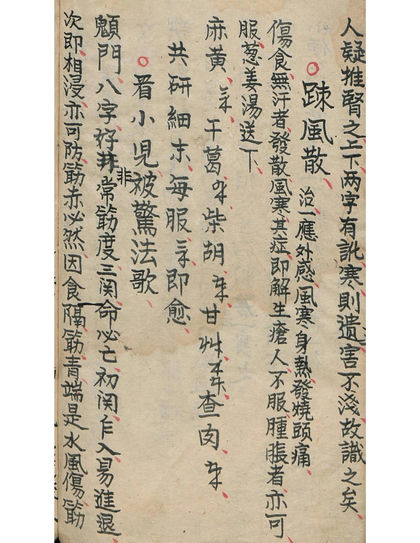 人疑推腎之上下两字有訛寒則遺害不淺故識之矣
疎風散 治一應外感風寒身熱發燒頭痛
傷食無汗者發散風寒其症即解生瘡人不服腫脹者亦可
服葱姜湯送下
麻黄 干葛 柴胡 甘艸 查肉
共研細末每服 即愈
看小児被驚法歌
顖門八字好非常筋度三関命必亡初関乍入易進退
次即相浸亦可防筋赤必然因食隔筋青端是水風傷筋